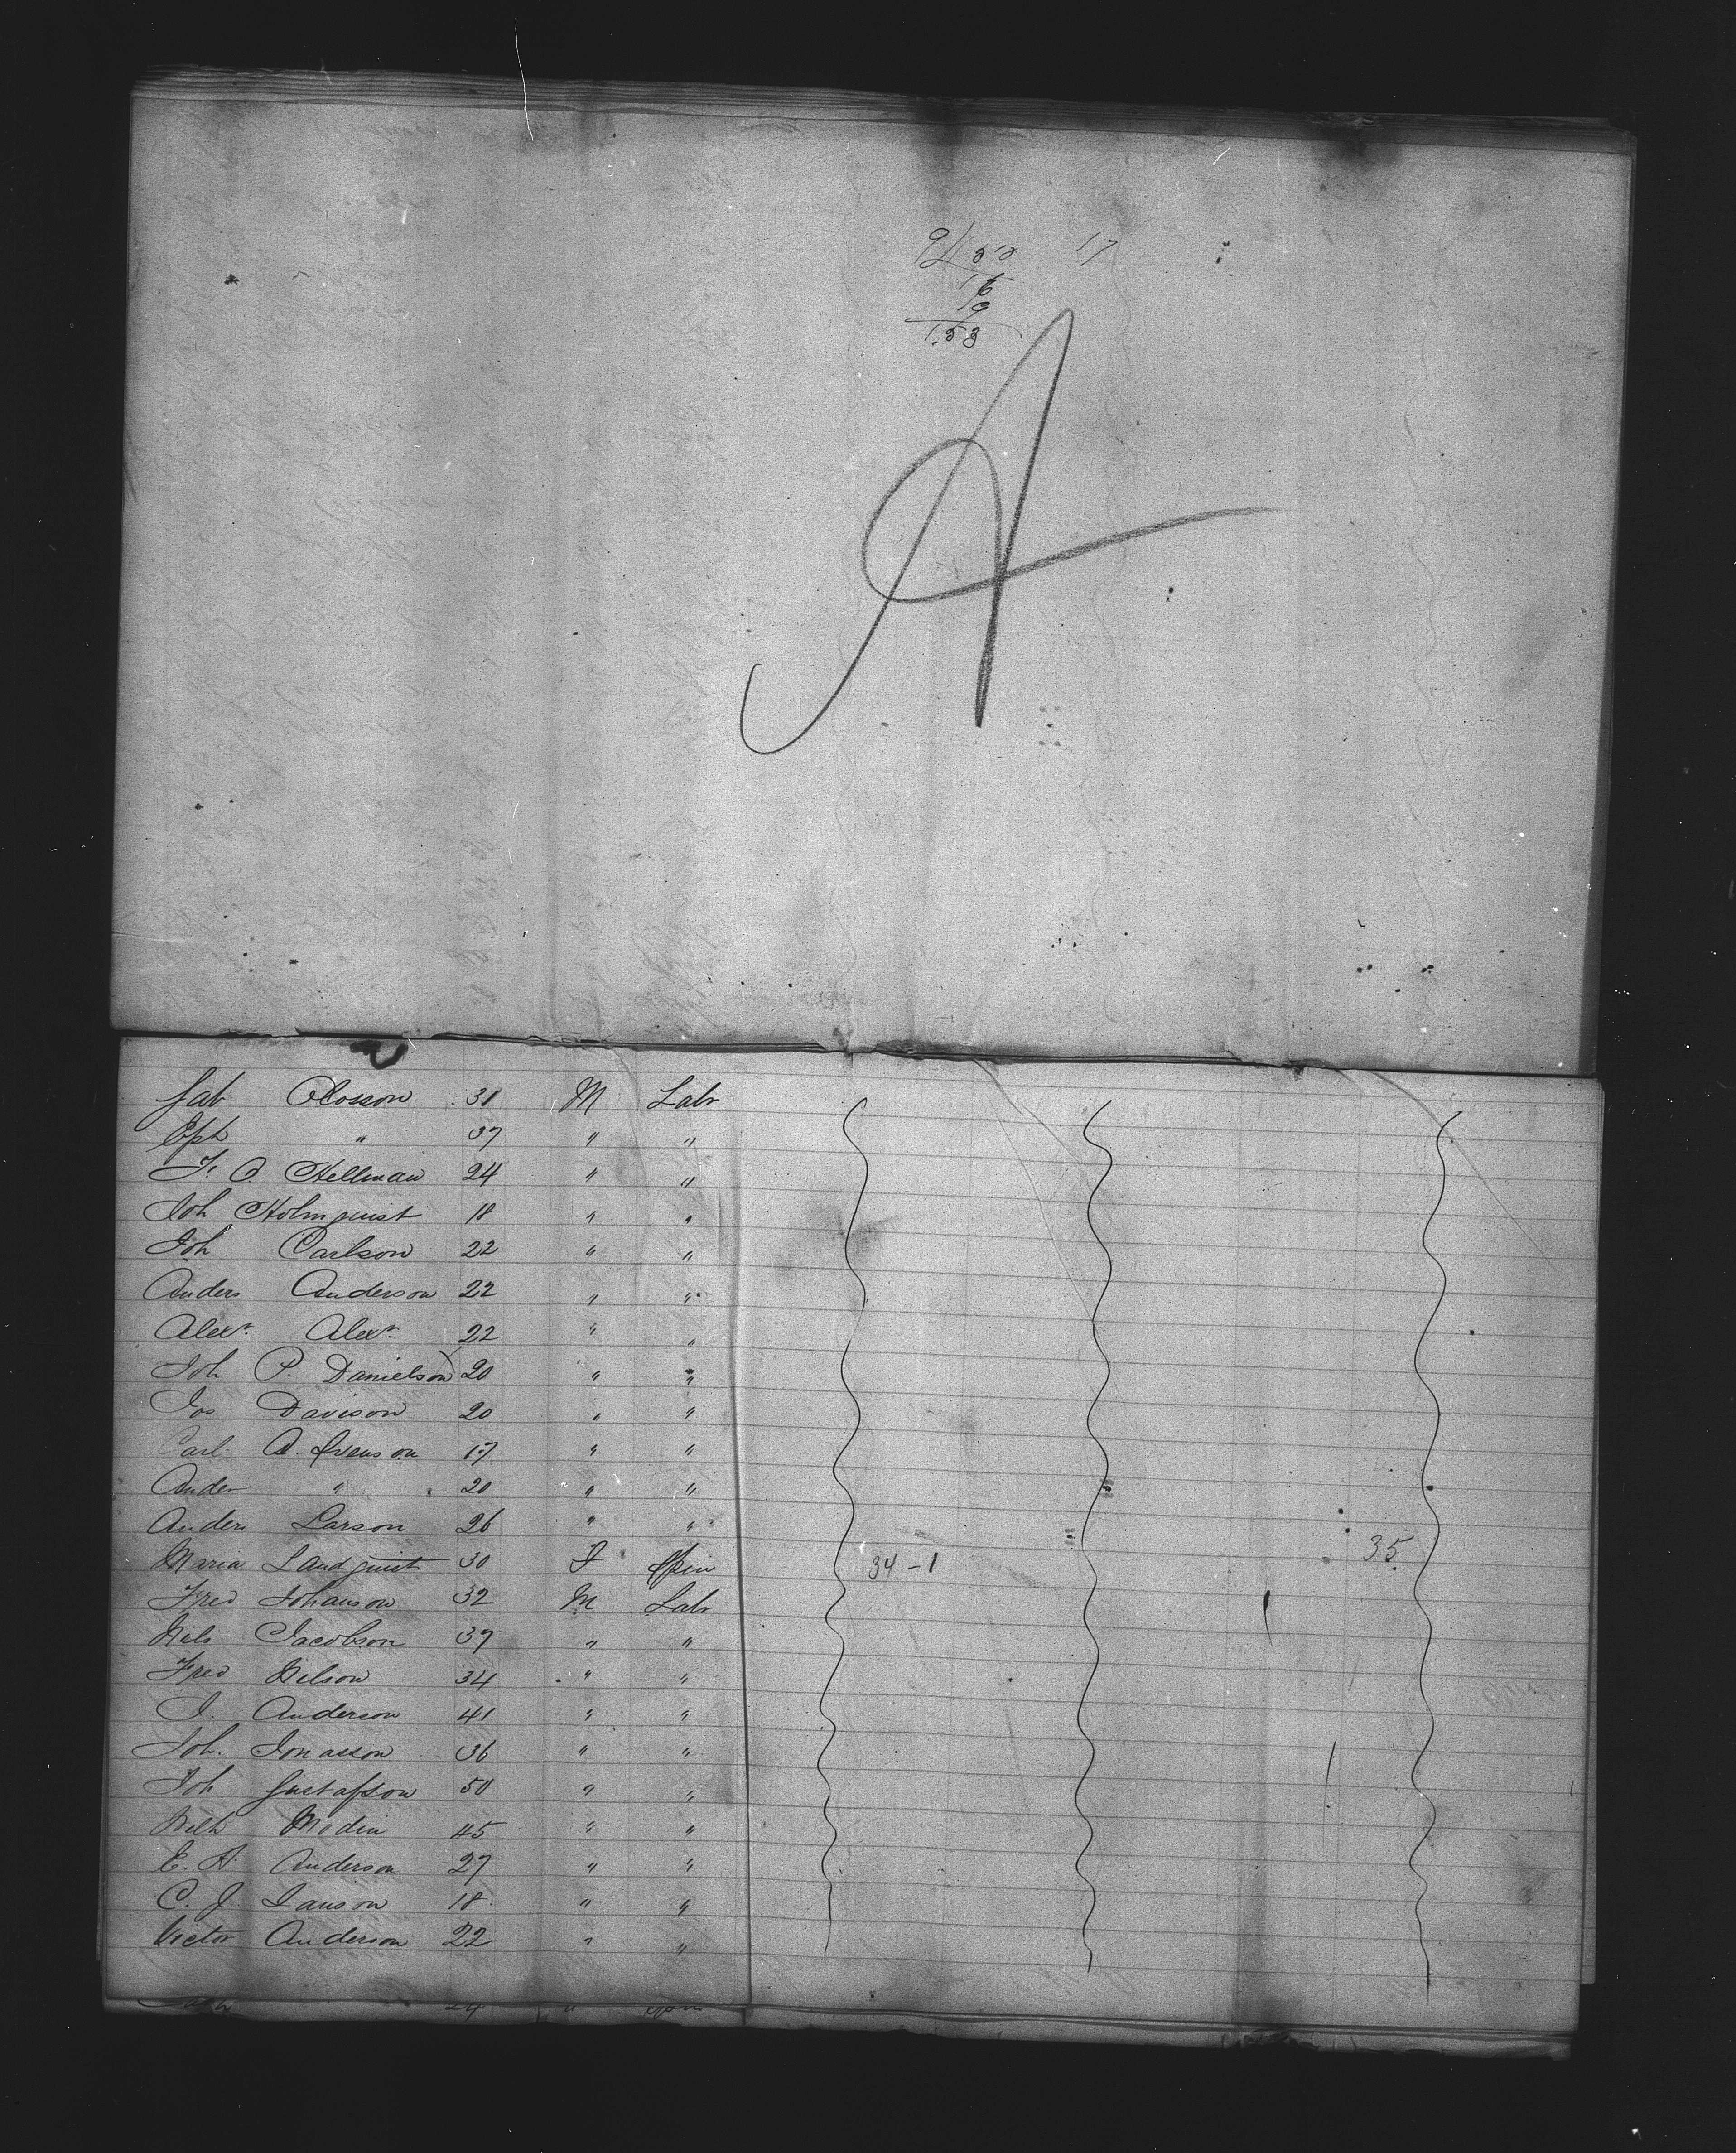 17
16
19
1.53
A
Olosson 31 M Labr
Eph " 37 " "
F. O Hellman 24 " "
Joh Holmquist 18 " "
Joh Carlson 22 " "
Anders Anderson 22 " "
Alexr. Alexr. 22 " "
Joh P. Danielson 20 " "
Jos Davison 20 " "
Carl A. Svenson 17 " "
Ander " 20 " "
Anders Larson 26 " "
Maria Landquist 30 F Spin 34-1 35
Fred Johanson 32 M Labr
Nils Jacobson 37 " "
Fred Nilson 34 " "
J. Anderson 41 " "
Joh. Jonasson 36 " "
Joh Gustafson 50 " "
Modin 45 " "
E. A. Anderson 27 " "
C. J. Janson 18 " "
Victor Anderson 22 " "
24 "